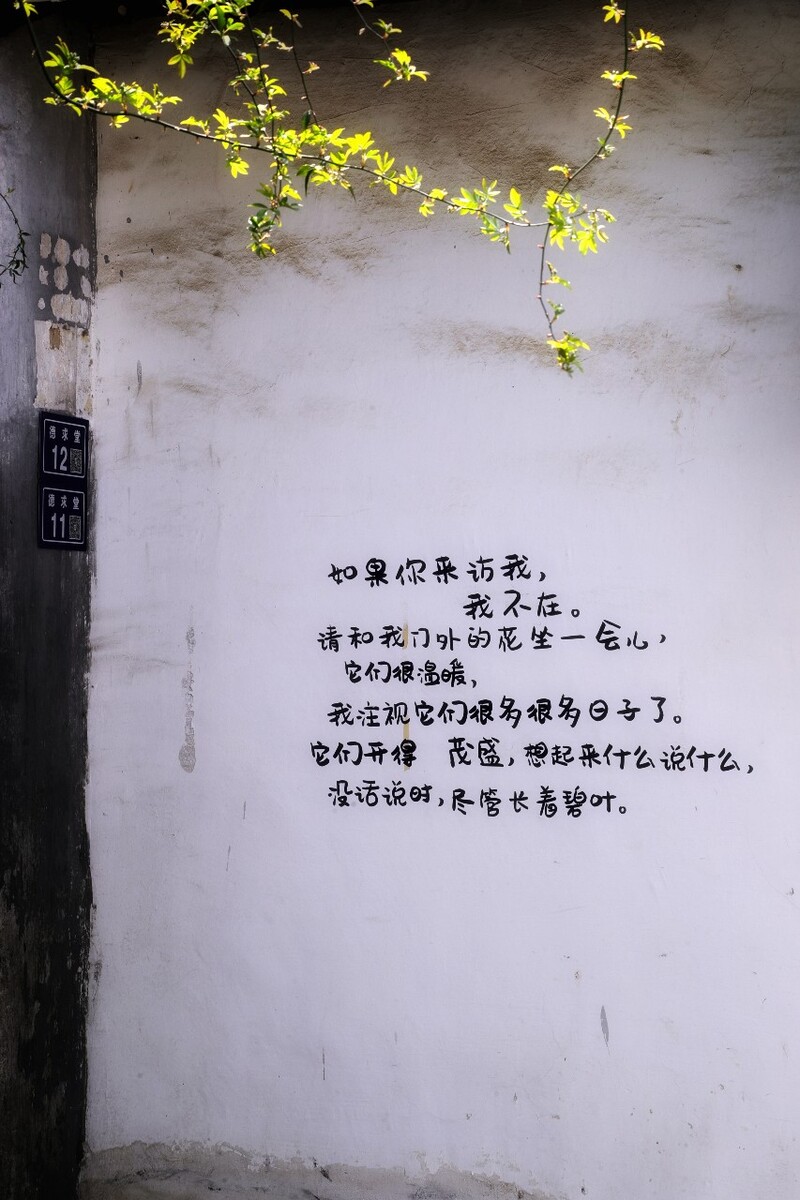 德求堂
12
德求堂
11
如果你来访我，
我不在。
请和我门外的花坐一会儿，
它们很温暖，
我注视它们很多很多日子了。
它们开得 茂盛，想起来什么说什么，
没话说时，尽管长着碧叶。